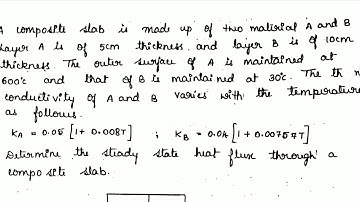 A composite slab is made up of two material A and B
Layer A is of 5cm thickness and layer B is of 10cm
thickness. The outer surface of A is maintained at
600°c and that of B is maintained at 30°c. The th
conductivity of A and B varies with the temperature
as follows.
KA = 0.05 [1 + 0.008T] ; KB = 0.04 [1 + 0.0075T]
Determine the steady state heat flux through a
composite slab.